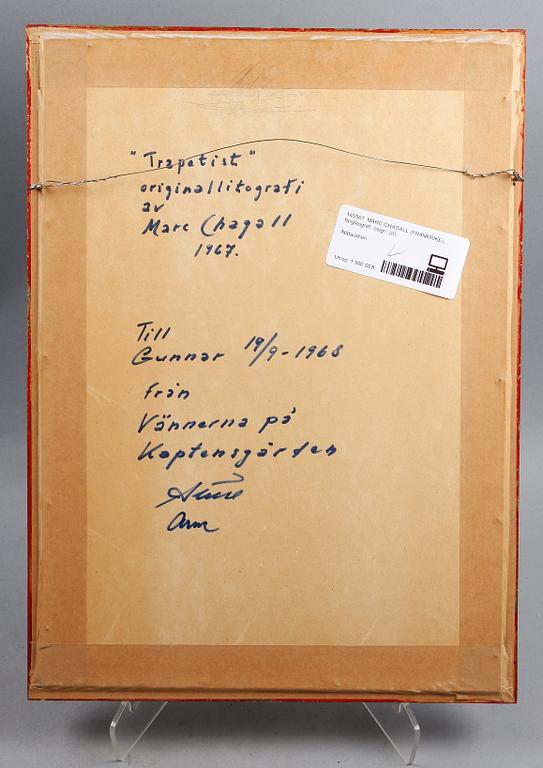 "Trapetist"
originallitografi
av
Marc Chagall
1967.
145567. MARC CHAGALL (FRANKRIKE),
färglitografi, osign. (d)
Nätauktion
Utrop: 1 500 SEK
Till
Gunnar 19/9-1968
från
Vännerna på
Kaptensgården